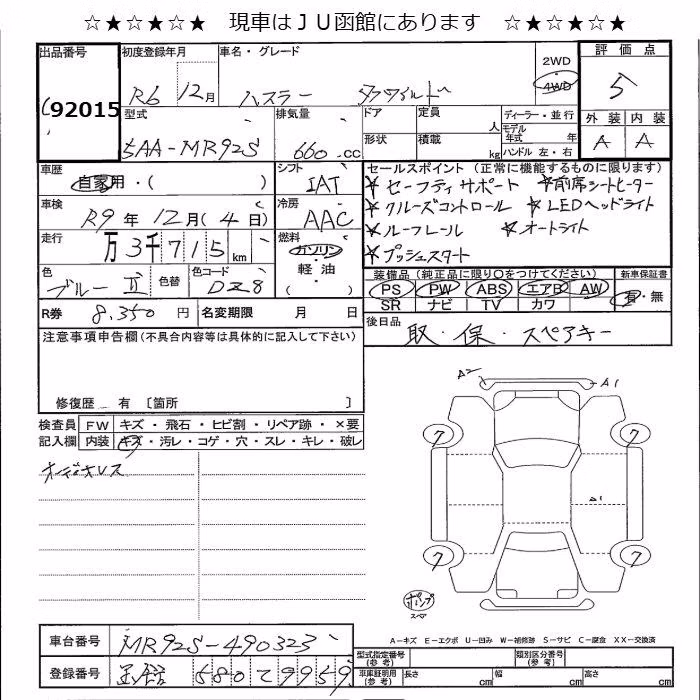 ☆★☆★☆★ 現車はＪＵ函館にあります ☆★☆★☆★
出品番号 初度登録年月 車名・グレード 2WD 評価点
92015 R6 12月 ハスラー タフワイルド 4WD 5
型式 排気量 ドア 定員 ディーラー・並行 外装 内装
人 モデル年式 年
5AA-MR92S 660.CC 形状 積載 kg ハンドル 左・右 A A
車歴 シフト セールスポイント (正常に機能するものに限ります)
自家用・( ) IAT ★セーフティサポート ★前席シートヒーター
車検 冷房 ★クルーズコントロール ★LEDヘッドライト
R9年 12月(4日) AAC ★ルーフレール ★オートライト
走行 燃料 ★プッシュスタート
万3千715km ガソリン・軽油( )
色 色替 色コード 装備品(純正品に限り○をつけてください) 新車保証書
ブルーⅡ DZ8 PS PW ABS エアB AW 有・無
SR ナビ TV カワ
R券 8,350円 名変期限 月 日 後日品
取・保・スペアキー
注意事項申告欄(不具合内容等は具体的に記入して下さい)
修復歴 - 有 〔箇所 〕
検査員 FW キズ・飛石・ヒビ割・リペア跡・×要
記入欄 内装 キズ・汚レ・コゲ・穴・スレ・キレ・破レ
オーディオレス
A2 A1
7 7
A1
7 7
ポンプ
スペア
A－キズ E－エクボ U－凹み W－補修跡 S－サビ C－腐食 XX－交換済
車台番号 MR92S-490323
型式指定番号(参考) 類別区分番号(参考)
登録番号 函館 580 て 9959
車庫証明用(参考) 長さ cm 幅 cm 高さ cm